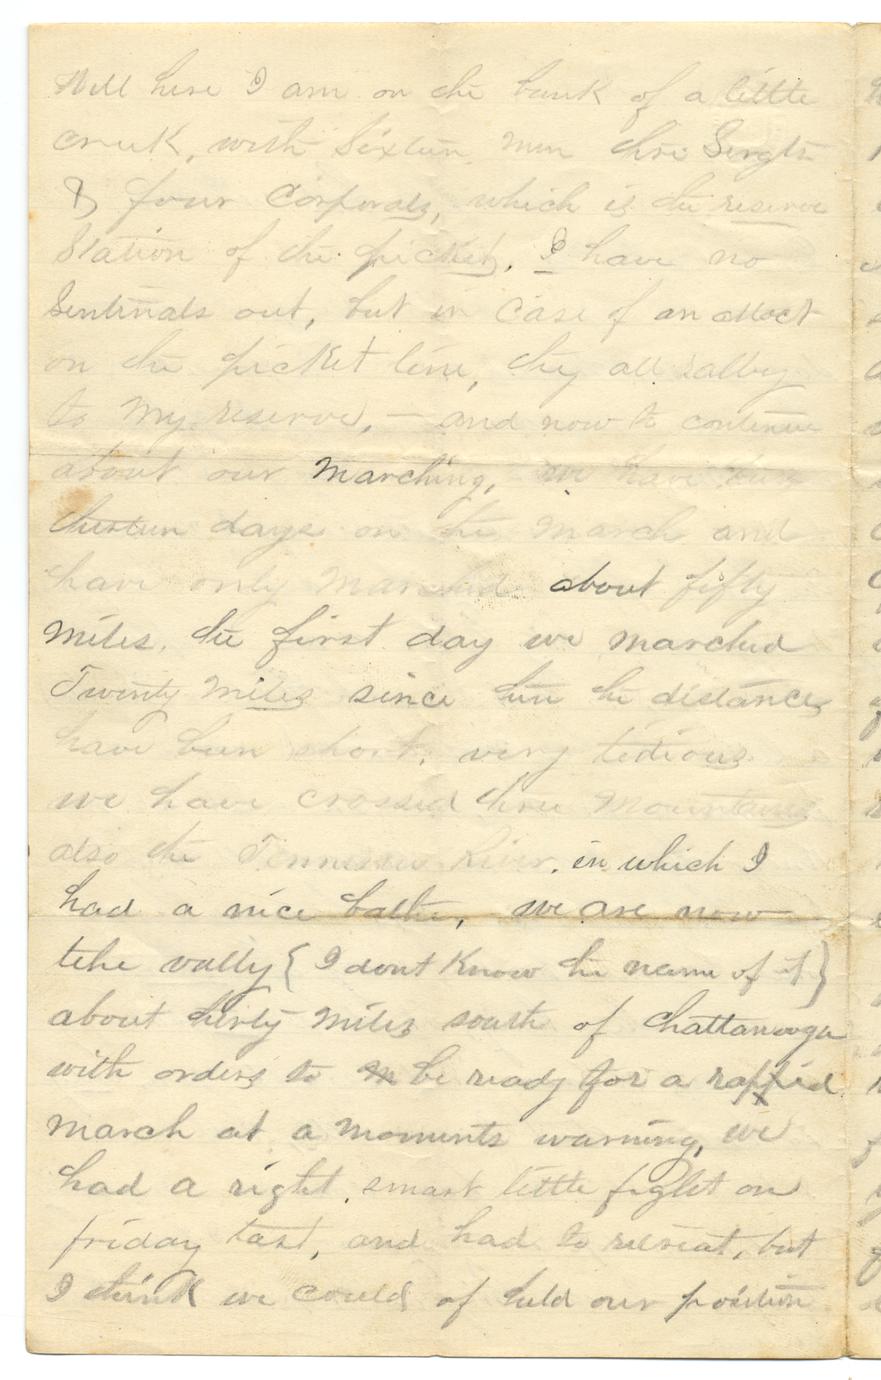 Well here I am on the bank of a little
creek, with Sixteen men three Sergts
& four Corporals, which is the reserve
Station of the picket, I have no
Sentinals out, but in case of an attact
on the picket line, they all rally
to my reserve, — and now to continue
about our marching, we have been
days on the March and
have only Marched about fifty
miles. the first day we marched
Twenty miles since then the distances
have been short, very tedious
we have crossed three Mountains
also the Tennessee River, in which I
had a nice bathe, we are now
the vally { I dont Know the name of it }
about thirty miles south of Chattanooga
with orders to be ready for a rapid
march at a moments warning, we
had a right smart little fight on
friday last, and had to retreat, but
I think we could of held our position